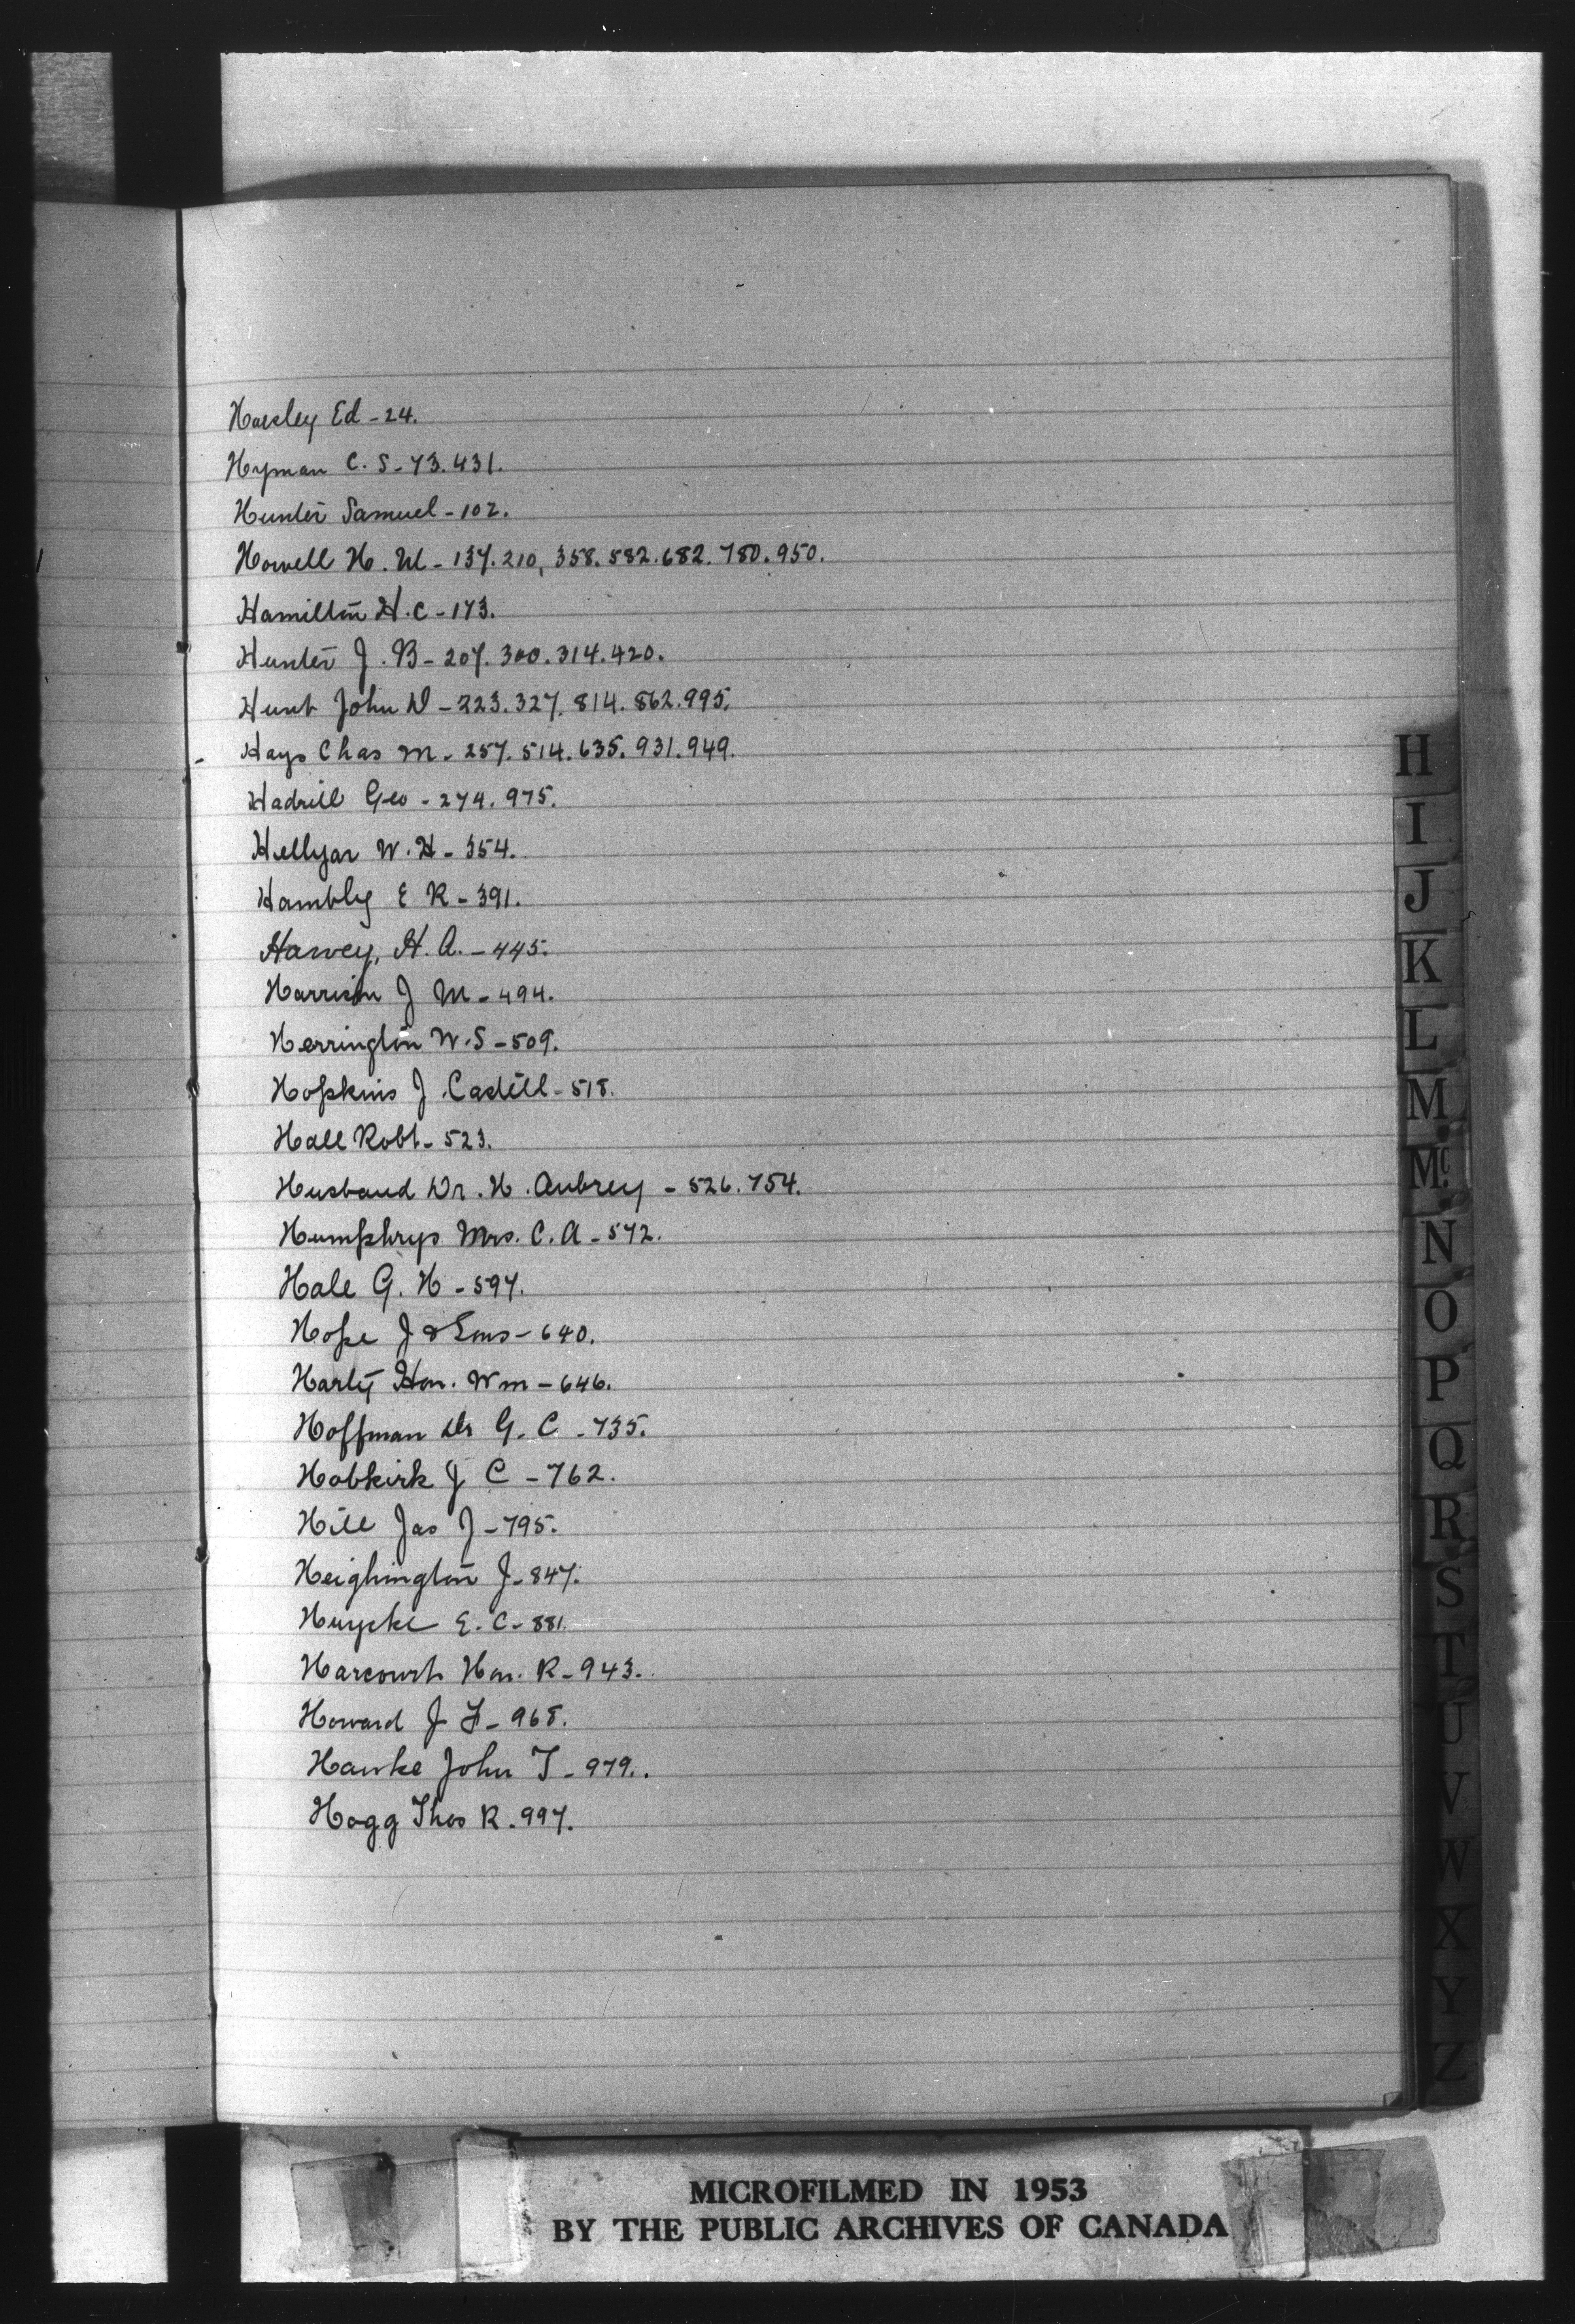 Horsley Ed - 24.
Hyman C. S - 73. 431.
Hunter Samuel - 102.
Howell H. M - 137. 210, 358. 582. 682. 780. 950.
Hamilton H. C - 173.
Hunter J. B - 207. 300. 314. 420.
Hunt John D - 223. 327. 814. 862. 995.
Hays Chas M - 257. 514. 635. 931. 949.
Hadrill Geo - 274. 975.
Hellyar W. H - 354.
Hambly E R - 391.
Harvey, H. A. - 445.
Harrison J M - 494.
Herrington W. S - 509.
Hopkins J Castell - 518.
Hall Robt - 523.
Husband Dr. H. Aubrey - 526. 754.
Humphrys Mrs. C. A - 572.
Hale G. H - 597.
Hope J & Sons - 640.
Harty Hon. Wm - 646.
Hoffman Dr G. C - 735.
Hobkirk J C - 762.
Hill Jas J - 795.
Heighington J - 847.
Huycke E. C - 881.
Harcourt Hon. R - 943.
Howard J F - 968.
Hawke John T - 979.
Hogg Thos R. 997.
H
I
J
K
L
M
Mc
N
O
P
Q
R
S
T
U
V
W
X
Y
Z
MICROFILMED IN 1953
BY THE PUBLIC ARCHIVES OF CANADA